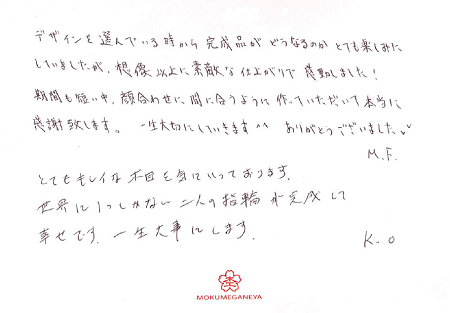 デザインを選んでいる時から完成品がどうなるのかとても楽しみに
していましたが、想像以上に素敵な仕上がりで感動しました!
期間も短い中、顔合わせに間に合うように作っていただいて本当に
感謝致します。一生大切にしていきます^^ ありがとうございました
M.F.
とてもキレイな木目を気にいっております。
世界に1つしかない二人の指輪が完成して
幸せです。一生大事にします。
K.O
MOKUMEGANEYA